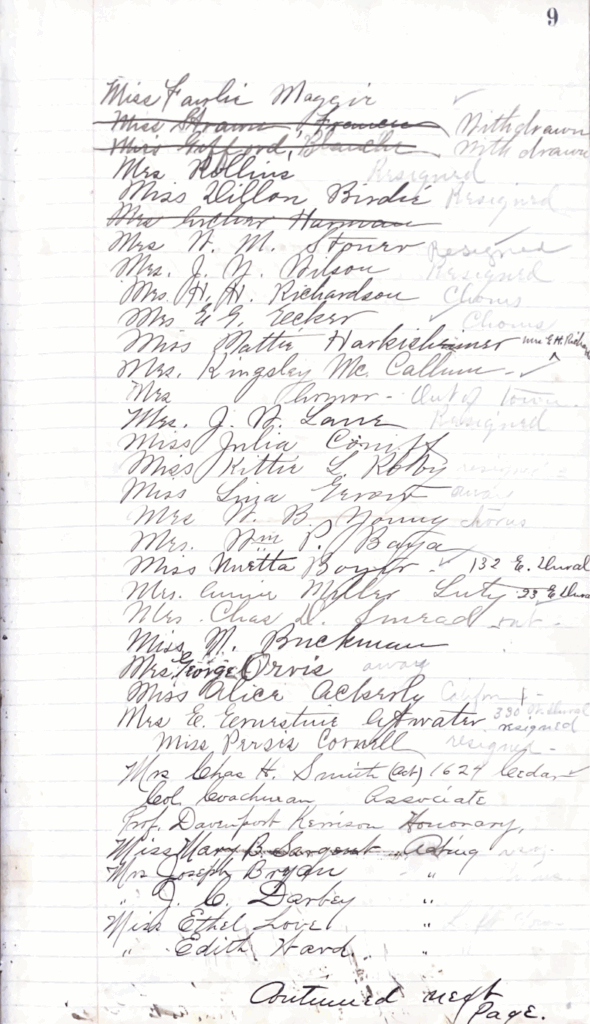 9
Miss Fowlie Maggie
Miss Strawn Frances Withdrawn
Miss Gifford, Blanche Withdrawn
Mrs Rollins Resigned
Miss Dillon Birdie Resigned
Mrs Archer Harman
Mrs W. M. Stoner Resigned
Mrs. J. Y. Wilson Resigned
Mrs. H. H. Richardson Chorus
Mrs E. G. Ecker Chorus
Miss Hattie Harkisheimer
Mrs. Kingsley Mc Callum
Mrs - Out of town
Mrs. J. W. Lane Resigned
Miss Julia
Miss Kittie L. resigned
Miss away
Mrs W. B. Young chorus
Mrs. Wm P. Baya
Miss Nuetta Boyer - 132 E. Duval
Mrs. Annie Miller Luty 23 E Duval
Mrs. Chas D. Smead
Miss M. Buckman
Mrs. George Orvis away
Miss Alice Ackerly
Mrs E. Ernestine Atwater 330 W. Duval resigned
Miss Persis Cornell resigned -
Mrs Chas H. Smith (Act) 1624 Cedar
Col. Associate
Prof. Davenport Kerrison Honorary,
Miss Mary B. Sargent Acting
Mrs Joseph Bryan "
" J. C. Darbey "
Miss Ethel Love "
" Edith Ward "
Continued next
Page.